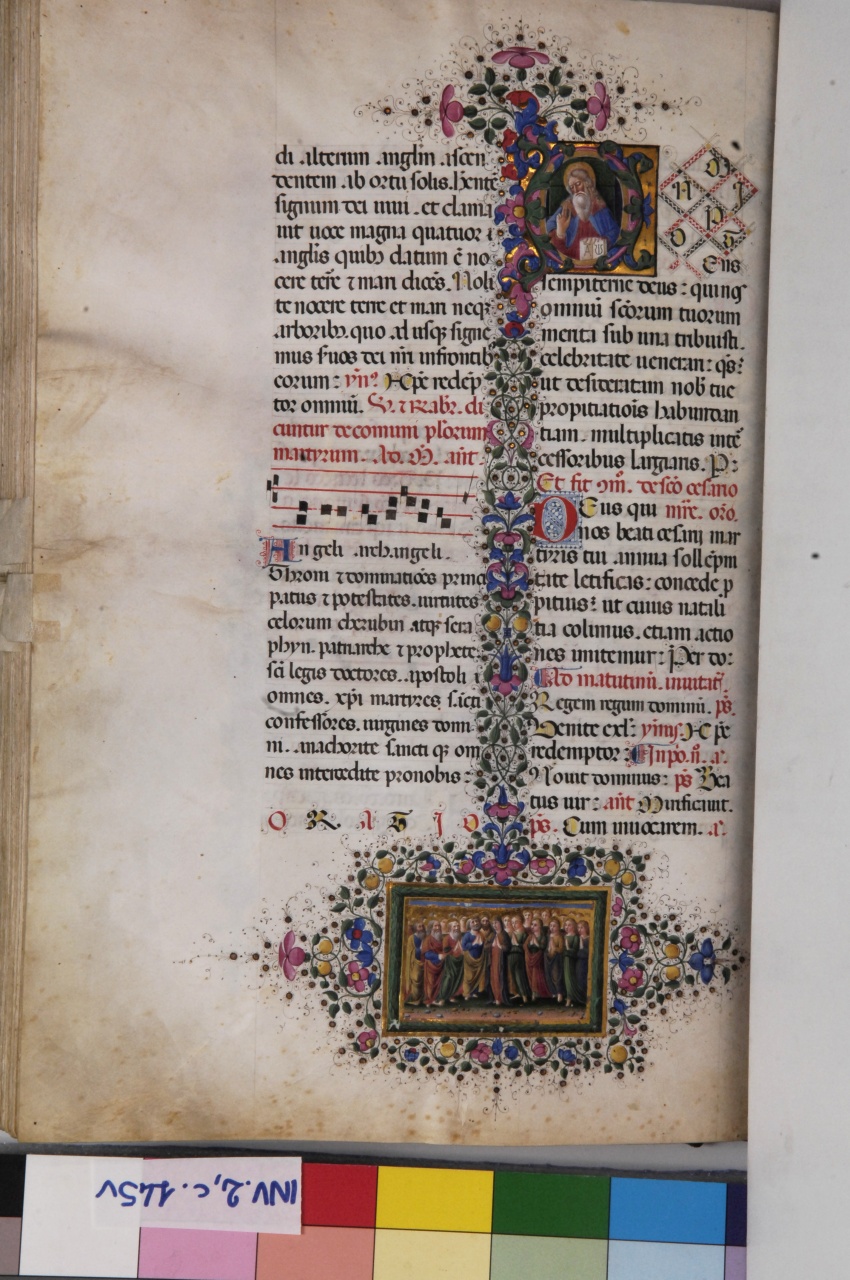 di alterum anglm ascen
dentem ab ortu solis hente
signum dei uiui. et clama
uit uoce magna quatuor
anglis quibȝ datum ē no
cere terre ⁊ mari dicēs. Noli
te nocere terre et mari neqȝ
arboribȝ quo ad usqȝ signe
mus suos dei nrī in frontibȝ
eorum: ymꝰ. Xp̄e redēp
tor omniū. di
cuntur de comuni plurimorum
martyrum. Ad. M. ant̄
Angeli archangeli.
Throni ⁊ dominatiōes princi
patus ⁊ potestates. uirtutes
celorum cherubin atqȝ sera
phyn. patriarche ⁊ prophete.
sc̄i legis doctores. apostoli
omnes. xp̄i martyres sancti
confessores. uirgines domi
ni. anachorite sancti qȝ om
nes intercedite pro nobis:
O R A T I O
OMNIPOT
Ens
sempiterne deus: qui nos
omniū scōrum tuorum
merita sub una tribuisti
celebritate uenerari: qs̄:
ut desideratam nob̄ tue
propitiatiois habundan
tiam. multiplicatis inte
cessoribus largiaris. P̄:
Et fit 9m̄. de scō cesario
Deus qui mr̄e. oro.
nos beati cesarij mar
tyris tui annua sollēpni
tate letificas: concede p
pitius: ut cuius natali
tia colimus. etiam actio
nes imitemur: Per do:
Ad matutinū. inuitat̄.
Regem regum dominū. ps̄.
Venite exl: ymꝰ. Xp̄e
redemptor: In po. n. a.
Nouit dominus: ps̄ Bea
tus uir: ant̄ Mirificauit.
ps̄. Cum inuocarem. a.
INV. 2, c. 145v